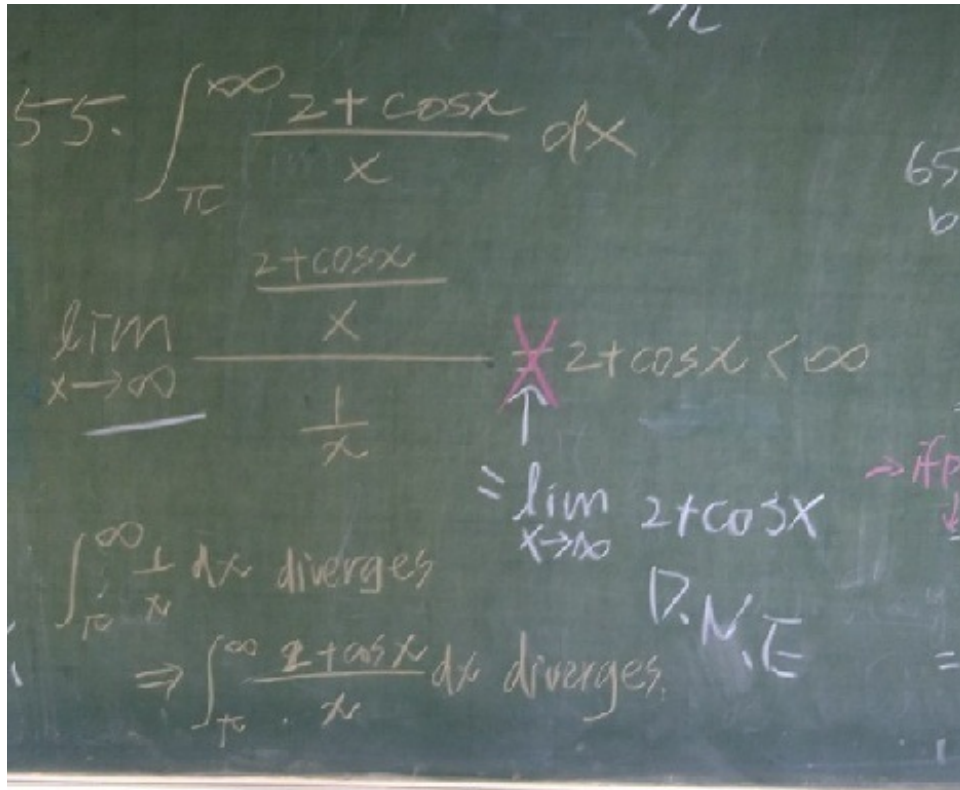 55. ∫_π^∞ (2+cosx)/x dx
65
b
lim_{x→∞} ((2+cosx)/x)/(1/x) = 2+cosx < ∞
↑
= lim_{x→∞} 2+cosx
⇒ if
D.N.E
∫_π^∞ 1/x dx diverges
⇒ ∫_π^∞ (2+cosx)/x dx diverges.